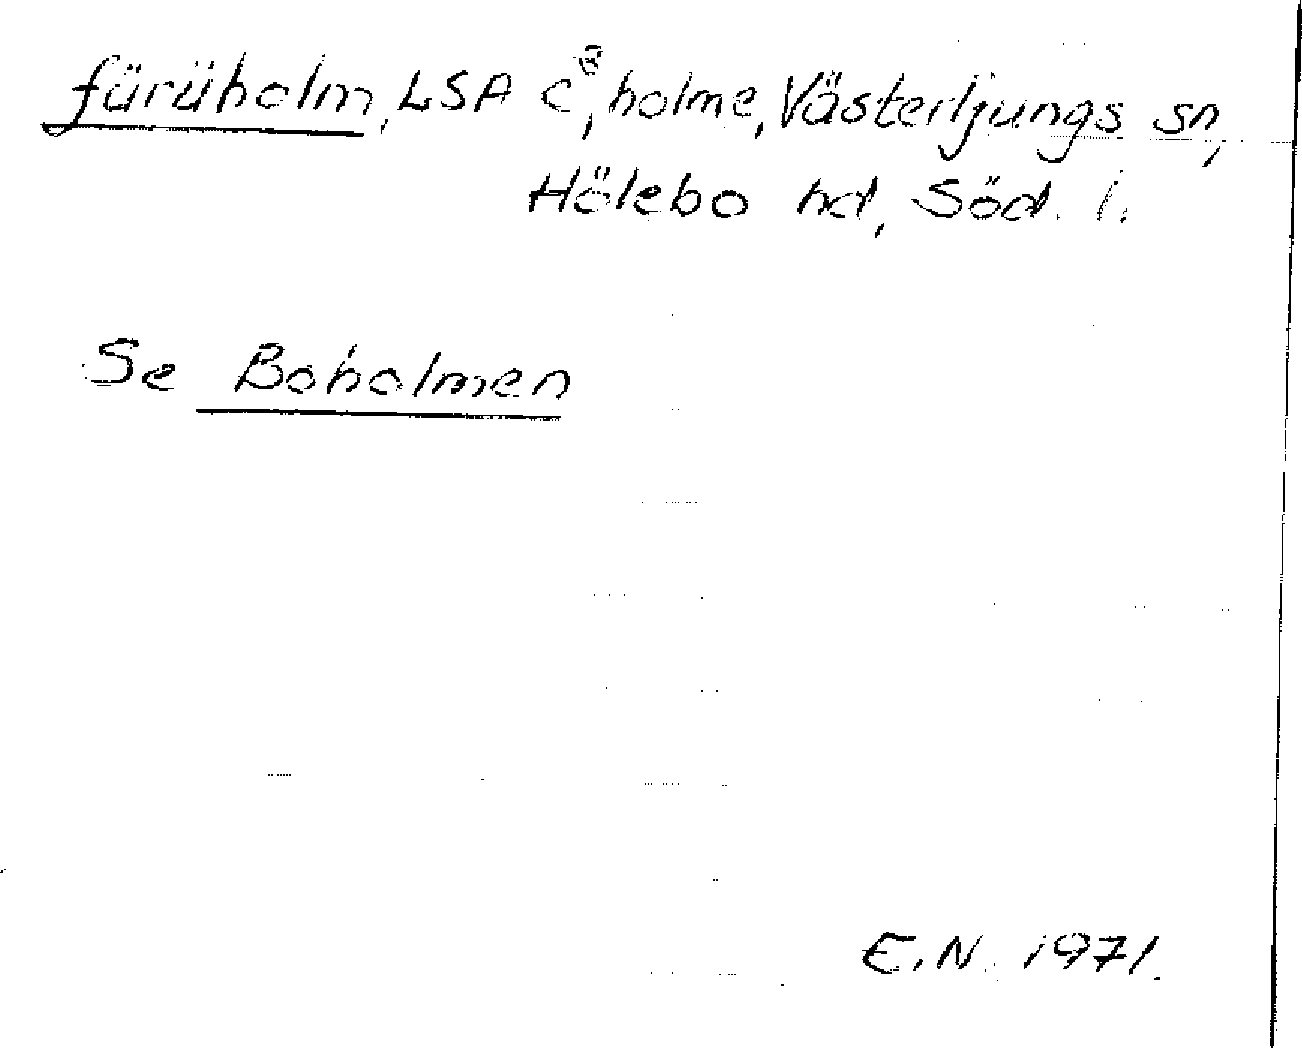 fürüholm, LSA C, holme, Västerljungs sn,
Hölebo hd, Söd. l.
Se Boholmen
E.N. 1971.